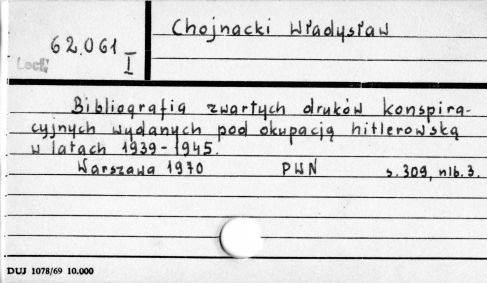 Chojnacki Władysław
62.061
I
Bibliografia zwartych druków konspira-
cyjnych wydanych pod okupacją hitlerowską
w latach 1939-1945.
Warszawa 1970 PWN s. 309, nlb. 3.
DUJ 1078/69 10.000